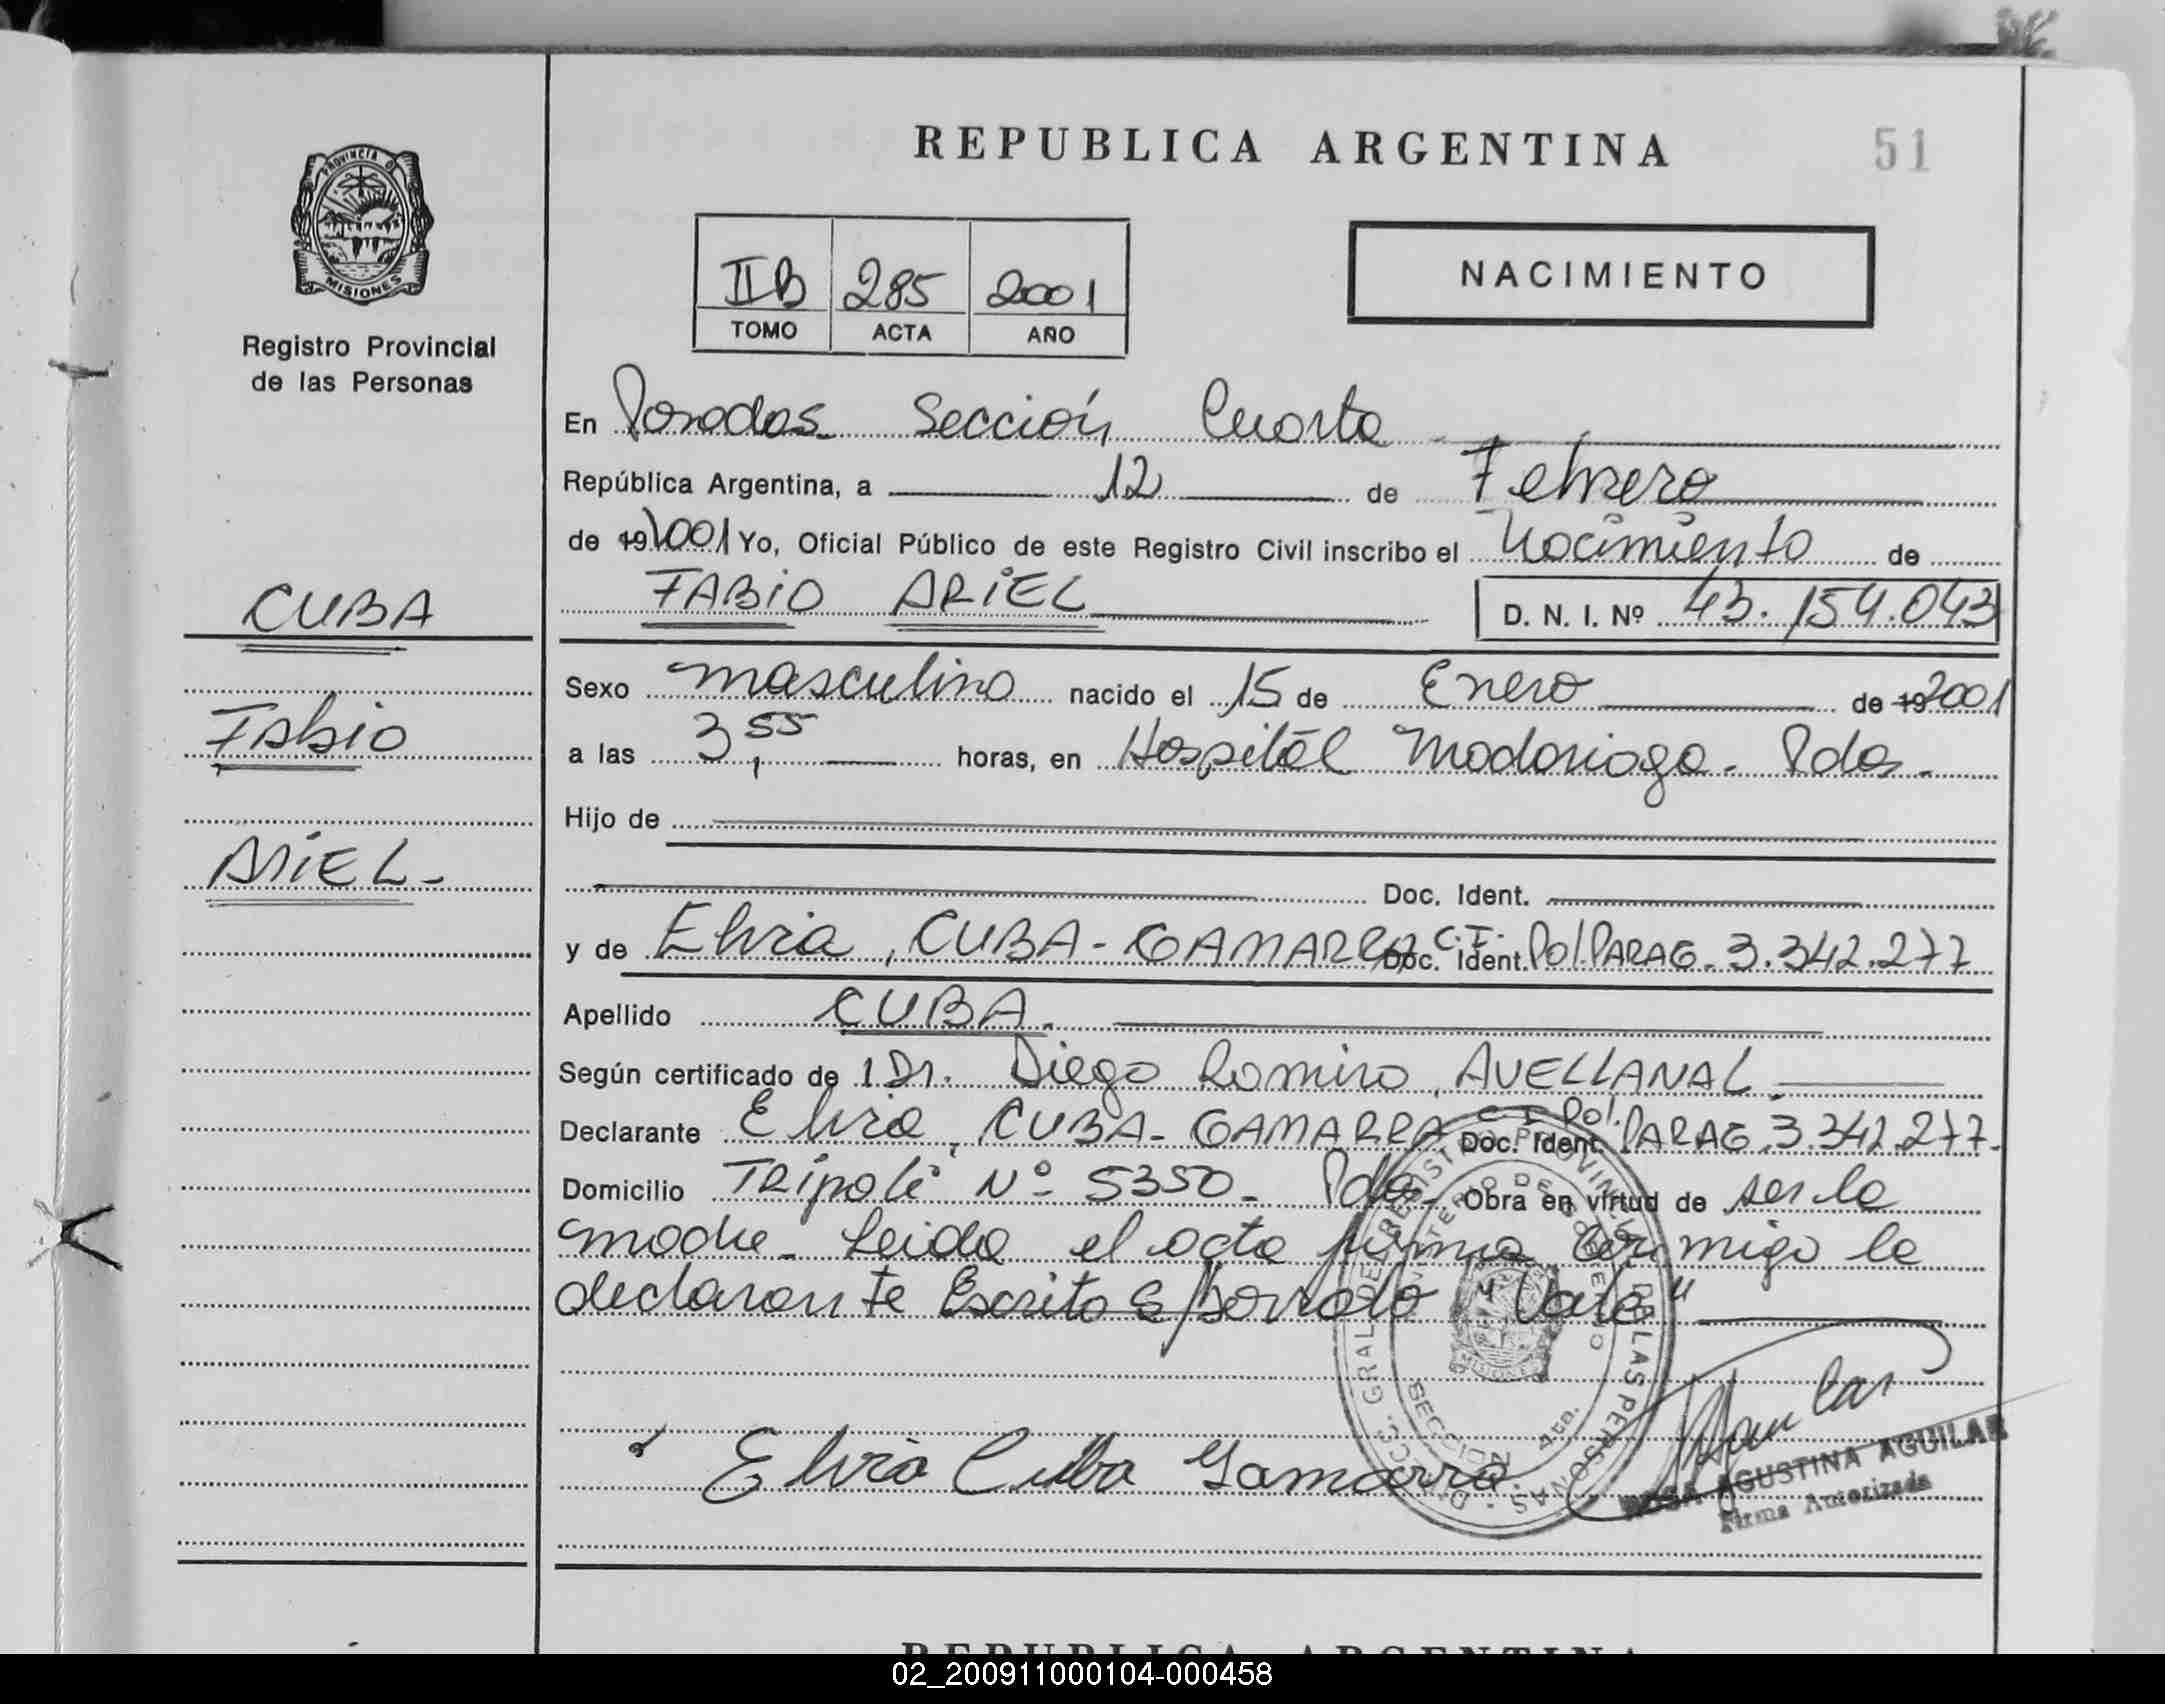 REPUBLICA ARGENTINA
51
PROVINCIA DE
MISIONES
Registro Provincial
de las Personas
IIB 285 2001
TOMO ACTA AÑO
NACIMIENTO
En Posadas Sección Cuarta
República Argentina, a 12 de Febrero
de 19 2001 Yo, Oficial Público de este Registro Civil inscribo el Nacimiento de
FABIO ARIEL D. N. I. Nº 43.154.043
CUBA
Fabio
ARIEL-
Sexo masculino nacido el 15 de Enero de 19 2001
a las 3,55 horas, en Hospital Madariaga - Pdas.
Hijo de
Doc. Ident.
y de Elvia, CUBA-GAMARRA C.I. Doc. Ident. Pol. PARAG. 3.342.277
Apellido CUBA.
Según certificado de 1 Dr. Diego Ramiro, AVELLANAL
Declarante Elvia, CUBA-GAMARRA C I Pol. Doc. Ident. PARAG. 3.342.277-
Domicilio Tripoli Nº 5350- Pdas- Obra en virtud de ser la
madre - Leida el acta firma conmigo la
declarante Escrito S/borrado "Vale"
Elvia Cuba Gamarra
Aguilar
ROSA AGUSTINA AGUILAR
Firma Autorizada
DIRECC. GRAL. DE REGISTRO PROVINCIAL DE LAS PERSONAS
MINISTERIO DE GOBIERNO
SECCION 4ta.
REPUBLICA ARGENTINA
02_200911000104-000458